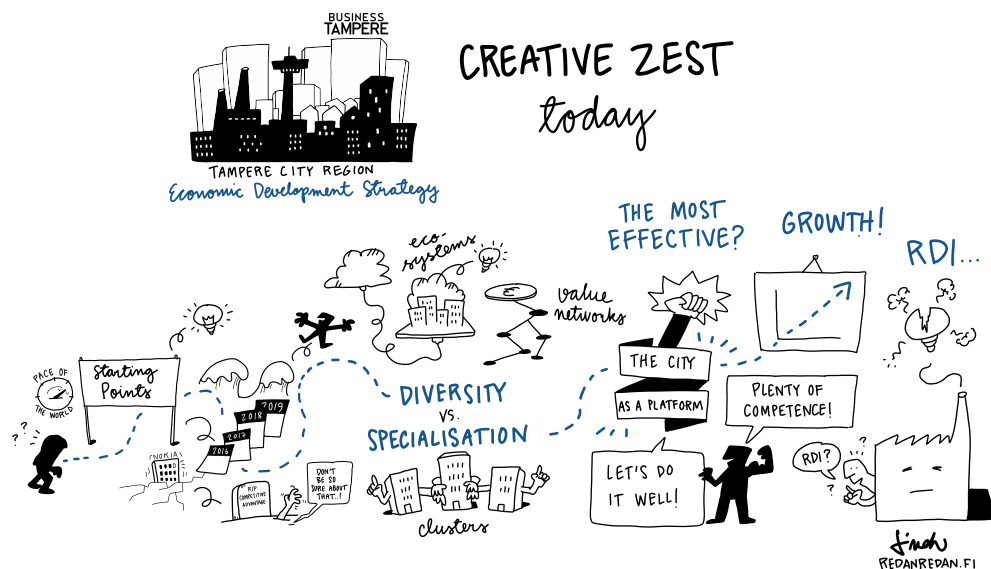 BUSINESS
TAMPERE
CREATIVE ZEST
today
TAMPERE CITY REGION
Economic Development Strategy
PACE OF
THE WORLD
? ?
Starting
Points
NOKIA
2016
2017
2018
2019
RIP
COMPETITIVE
ADVANTAGE
DON'T
BE SO
SURE ABOUT
THAT..!
eco-
systems
€
value
networks
DIVERSITY
VS.
SPECIALISATION
clusters
THE MOST
EFFECTIVE?
THE CITY
AS A PLATFORM
LET'S DO
IT WELL!
GROWTH!
PLENTY OF
COMPETENCE!
RDI...
RDI?
?
?
REDANREDAN.FI